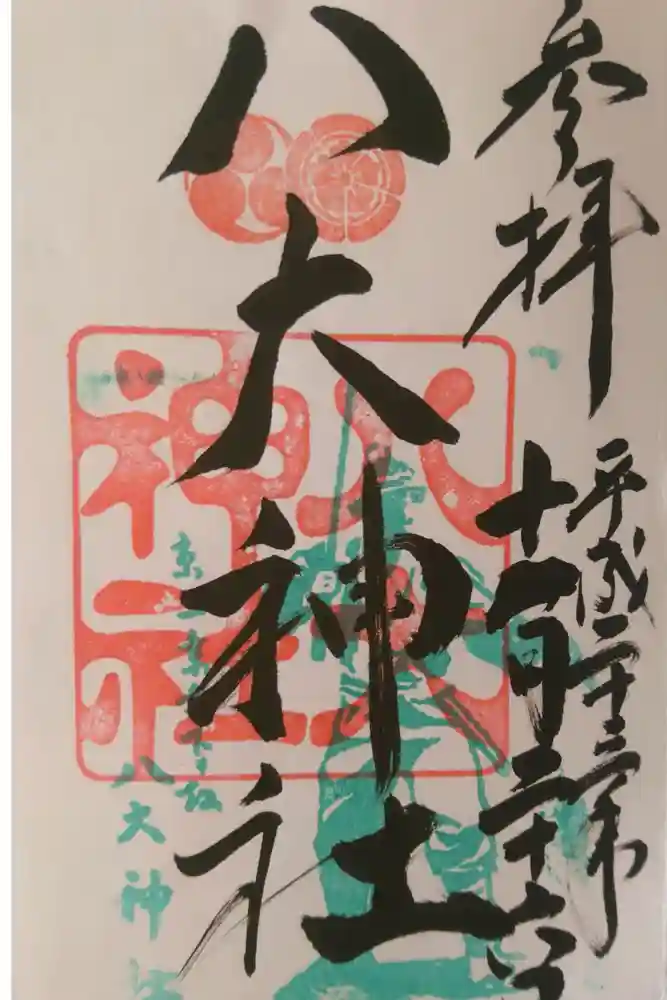 参拝
平成二十三年
十一月二十六日
八大神社
八大神社
京一乗寺下り松
八大神社